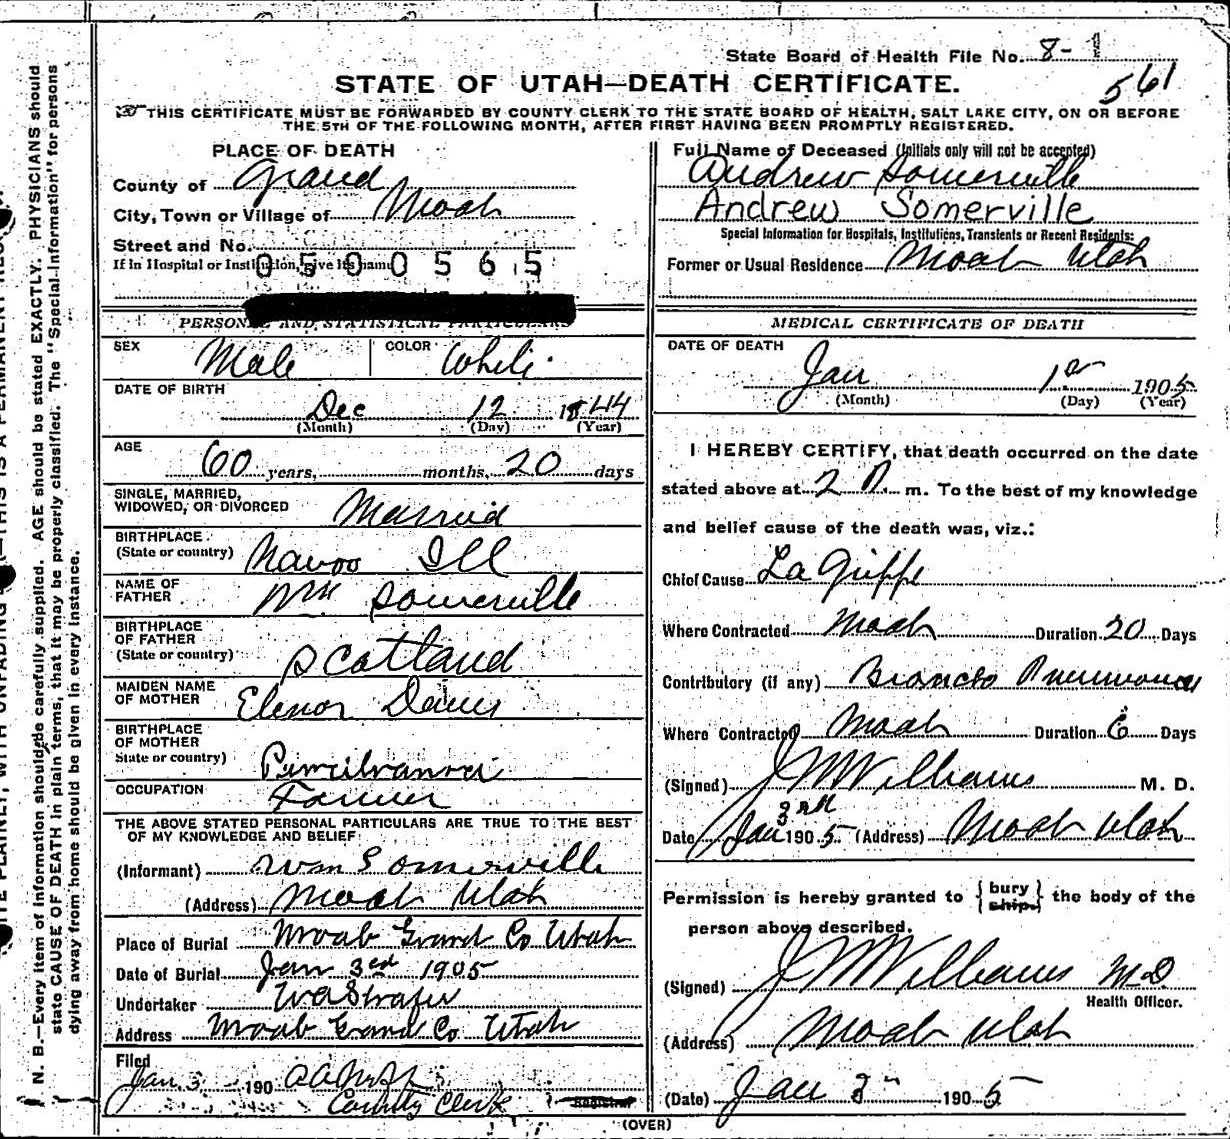 State Board of Health File No. 8-1
561
STATE OF UTAH—DEATH CERTIFICATE.
THIS CERTIFICATE MUST BE FORWARDED BY COUNTY CLERK TO THE STATE BOARD OF HEALTH, SALT LAKE CITY, ON OR BEFORE
THE 5TH OF THE FOLLOWING MONTH, AFTER FIRST HAVING BEEN PROMPTLY REGISTERED.
PLACE OF DEATH
County of Grand
City, Town or Village of Moab
Street and No.
If in Hospital or Institution, give its name
0500565
PERSONAL AND STATISTICAL PARTICULARS
SEX Male COLOR White
DATE OF BIRTH
Dec 12 1844
(Month) (Day) (Year)
AGE
60 years, months, 20 days
SINGLE, MARRIED,
WIDOWED, OR DIVORCED Married
BIRTHPLACE
(State or country) Navoo Ill
NAME OF
FATHER Wm Somerville
BIRTHPLACE
OF FATHER
(State or country) Scotland
MAIDEN NAME
OF MOTHER Elenor
BIRTHPLACE
OF MOTHER
State or country)
OCCUPATION Farmer
THE ABOVE STATED PERSONAL PARTICULARS ARE TRUE TO THE BEST
OF MY KNOWLEDGE AND BELIEF
(Informant) Wm Somerville
(Address) Moab Utah
Place of Burial Moab Grand Co Utah
Date of Burial Jan 3rd 1905
Undertaker
Address Moab Grand Co Utah
Filed
Jan. 3 190
County Clerk Registrar
(OVER)
Full Name of Deceased (Initials only will not be accepted)
Andrew Somerville
Andrew Somerville
Special Information for Hospitals, Institutions, Transients or Recent Residents:
Former or Usual Residence Moab Utah
MEDICAL CERTIFICATE OF DEATH
DATE OF DEATH
Jan 1st 1905
(Month) (Day) (Year)
I HEREBY CERTIFY, that death occurred on the date
stated above at 2 m. To the best of my knowledge
and belief cause of the death was, viz.:
Chief Cause La Grippe
Where Contracted Moab Duration 20 Days
Contributory (if any) Broncho Pneumonia
Where Contracted Moab Duration 6 Days
(Signed) J W Williams M. D.
Date Jan 3rd 1905 (Address) Moab Utah
Permission is hereby granted to {bury ship.} the body of the
person above described.
(Signed) J W Williams M.D
Health Officer.
(Address) Moab Utah
(Date) Jan 3 1905
N. B.—Every item of information should be carefully supplied. AGE should be stated EXACTLY. PHYSICIANS should
state CAUSE OF DEATH in plain terms, that it may be properly classified. The "Special Information" for persons
dying away from home should be given in every instance.